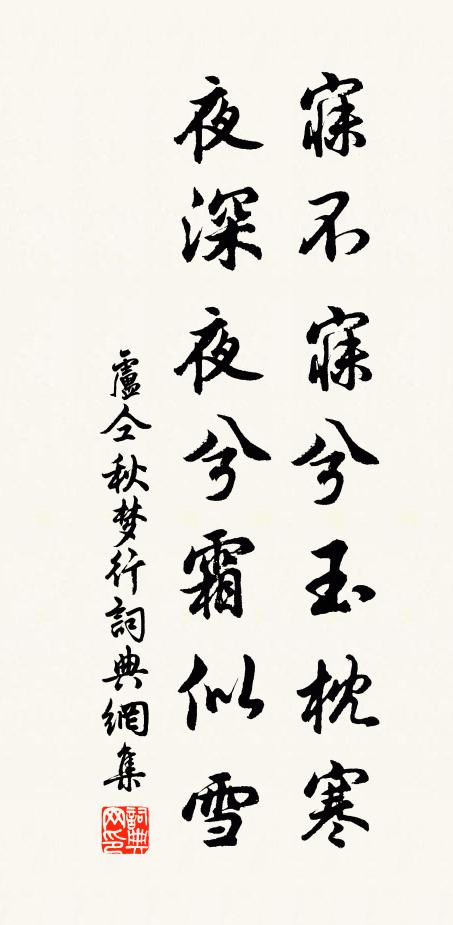 寐不寐兮玉枕寒
夜深夜兮霜似雪
盧仝秋梦行詞典網集
詞典网印